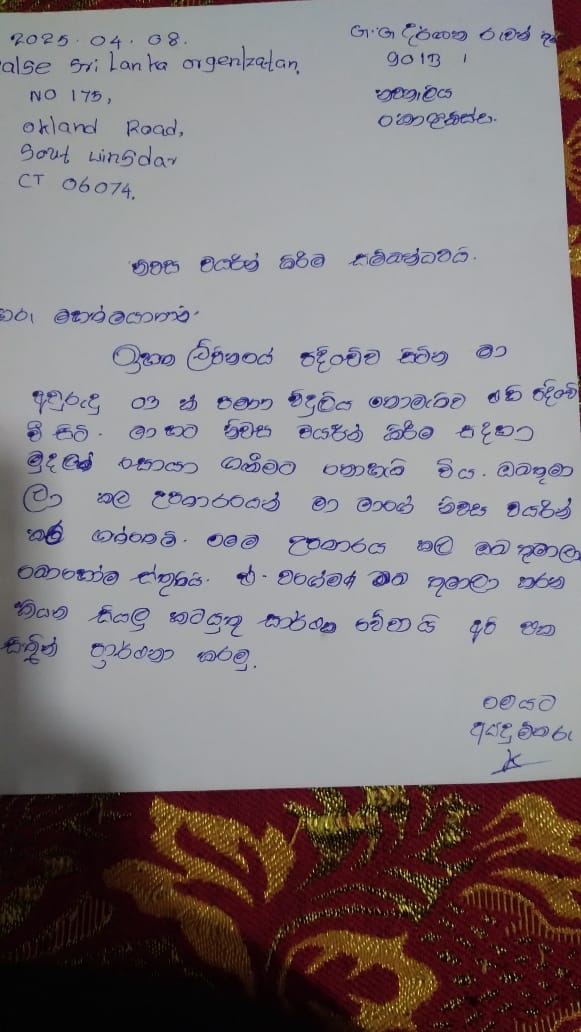 2025. 04. 08.
alse Sri Lanka orgenizatan,
NO 175,
Okland Road,
Sout Winsdar
CT 06074.
G.G දිර්ශන රුවන්
90 1B 1
නිවස වයරින් කිරිම සම්බන්ධවයි.
ගරු මහත්මයාණනි
ඉහත ලිපිනයේ පදිංචිව සිටින මා
අවුරුදු 03 ක් පමණ විදුලිය නොමැතිව පදිංචි
වී සිටි. මා හට නිවස වයරින් කිරිම සදහා
මුදල් සොයා ගනිමට නොහැකි විය. ඔබතුමා
ලා කල උපකාරයෙන් මා මාගේ නිවස වයරින්
කර ගත්තෙමි. මෙම උපකාරය කල ඔබ තුමාලා
බොහොම ස්තූතියි. ඒ වගේමත් ඔබ තුමාලා කරන
කියන සියලු කටයුතු සාර්ථක වේවා යි අපි එක
සිතින් ප්‍රාර්ථනා කරමු.
මෙයට
අයදුම්කරු